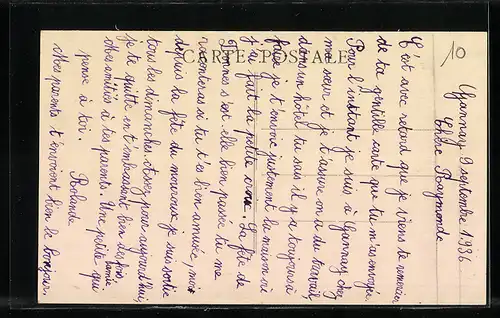 Gannay 9 septembre 1936
Chère Raymonde
C'est avec retard que je viens te remercier
de ta gentille carte que tu m'as envoyée.
Pour l'instant je suis à Gannay chez
ma sœur et je t'assure on a du travail,
dans un hôtel tu sais il y a toujours à
faire je t'envoie justement la maison où
j'ai fait la petite croix. La fête de
s'est elle bien passée tu me
raconteras si tu t'es bien amusée, moi
depuis la fête du nouveau je suis sortie
tous les dimanches. Assez pour aujourd'hui,
je te quitte en t'embrassant bien des fois,
Mes amitiés à tes parents. Une petite amie qui
pense à toi. Rolande
Mes parents t'envoient bien le bonjour.
CARTE POSTALE
10